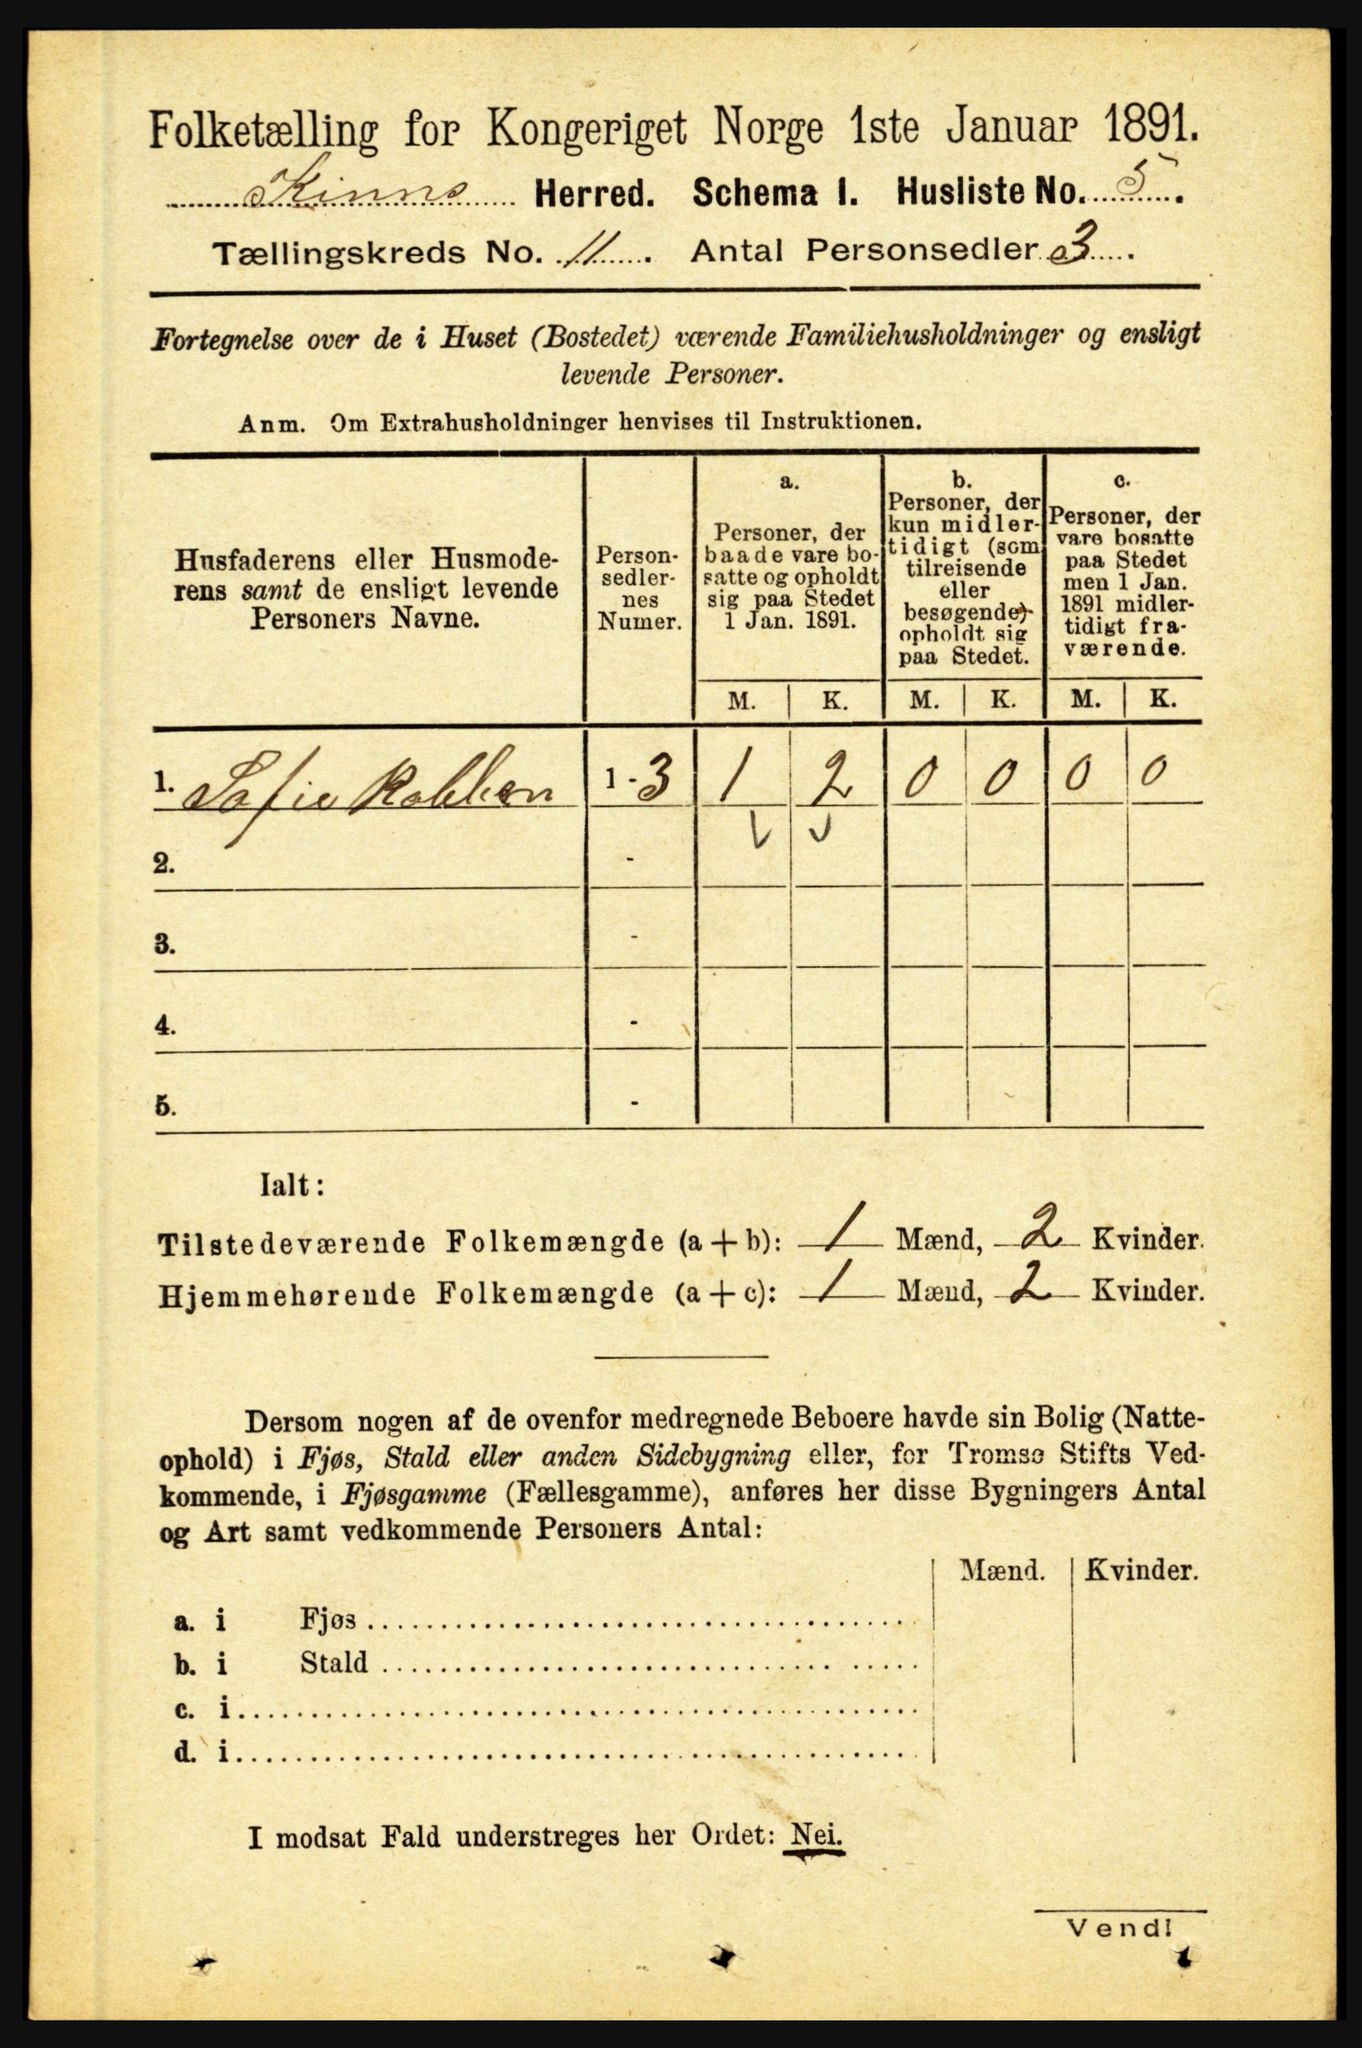 Folketælling for Kongeriget Norge 1ste Januar 1891.
Kinns Herred. Schema I. Husliste No. 5.
Tællingskreds No. 11. Antal Personsedler 3.
Fortegnelse over de i Huset (Bostedet) værende Familiehusholdninger og ensligt
levende Personer.
Anm. Om Extrahusholdninger henvises til Instruktionen.
Husfaderens eller Husmode-
rens samt de ensligt levende
Personers Navne.
Person-
sedler-
nes
Numer.
a.
Personer, der
baade vare bo-
satte og opholdt
sig paa Stedet
1 Jan. 1891.
b.
Personer, der
kun midler-
tidigt (som
tilreisende
eller
besøgende)
opholdt sig
paa Stedet.
c.
Personer, der
vare bosatte
paa Stedet
men 1 Jan.
1891 midler-
tidigt fra-
værende.
M. K. M. K. M. K.
1. Sofie Rabben 1-3 1 2 0 0 0 0
2. -
3. -
4. -
5. -
Ialt:
Tilstedeværende Folkemængde (a + b): 1 Mænd, 2 Kvinder.
Hjemmehørende Folkemængde (a + c): 1 Mænd, 2 Kvinder.
Dersom nogen af de ovenfor medregnede Beboere havde sin Bolig (Natte-
ophold) i Fjøs, Stald eller anden Sidebygning eller, for Tromsø Stifts Ved-
kommende, i Fjøsgamme (Fællesgamme), anføres her disse Bygningers Antal
og Art samt vedkommende Personers Antal:
Mænd. Kvinder.
a. i Fjøs
b. i Stald
c. i
d. i
I modsat Fald understreges her Ordet: Nei.
Vend!